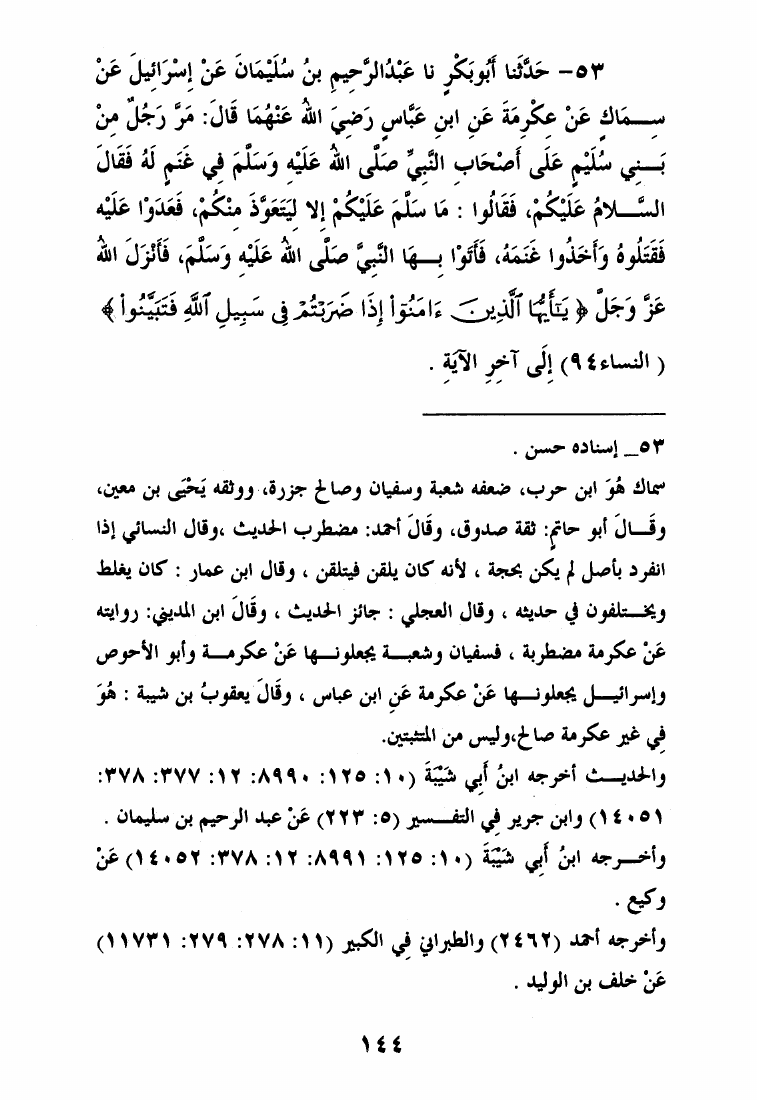 ٥٣- حَدَّثَنا أَبُوبَكْرٍ نا عَبْدُالرَّحِيمِ بنُ سُلَيْمَانَ عَنْ إِسْرَائِيلَ عَنْ
سِـمَاكٍ عَنْ عِكْرِمَةَ عَنِ ابنِ عَبَّاسٍ رَضِيَ اللهُ عَنْهُمَا قَالَ: مَرَّ رَجُلٌ مِنْ
بَـنِي سُلَيْمٍ عَلَى أَصْحَابِ النَّبِيِّ صَلَّى اللهُ عَلَيْهِ وَسَلَّمَ فِي غَنَمٍ لَهُ فَقَالَ
السَّـلامُ عَلَيْكُمْ، فَقَالُوا : مَا سَلَّمَ عَلَيْكُمْ إِلا لِيَتَعَوَّذَ مِنْكُمْ، فَعَدَوْا عَلَيْهِ
فَقَتَلُوهُ وَأَخَذُوا غَنَمَهُ، فَأَتَوْا بِـهَا النَّبِيَّ صَلَّى اللهُ عَلَيْهِ وَسَلَّمَ، فَأَنْزَلَ اللهُ
عَزَّ وَجَلَّ ﴿ يَـٰٓأَيُّهَا ٱلَّذِينَ ءَامَنُوٓا۟ إِذَا ضَرَبْتُمْ فِى سَبِيلِ ٱللَّهِ فَتَبَيَّنُوا۟ ﴾
( النساء٩٤) إِلَى آخِرِ الآيَةِ .
٥٣_ إسناده حسن .
سماك هُوَ ابن حرب، ضعفه شعبة وسفيان وصالح جزرة، ووثقه يَحْيَى بن معين،
وقَـالَ أبو حاتِمٍ: ثقة صدوق، وقَالَ أحمد: مضطرب الحديث ،وقال النسائي إذا
انفرد بأصل لم يكن بحجة ، لأنه كان يلقن فيتلقن ، وقال ابن عمار : كان يغلط
ويخـتلفون في حديثه ، وقال العجلي : جائز الحديث ، وقَالَ ابن المديني: روايته
عَنْ عكرمة مضطربة ، فسفيان وشعبـة يجعلونـها عَنْ عكرمـة وأبو الأحوص
وإسرائيـل يجعلونـها عَنْ عكرمة عَنِ ابن عباس ، وقَالَ يعقوبُ بن شيبة : هُوَ
فِي غير عكرمة صالح،وليس من المتثبتين.
والحديـث أخرجه ابنُ أَبِي شَيْبَةَ (١٠: ١٢٥: ٨٩٩٠: ١٢: ٣٧٧: ٣٧٨:
١٤٠٥١) وابن جرير فِي التفـسير (٥: ٢٢٣) عَنْ عبد الرحيم بن سليمان .
وأخـرجه ابنُ أَبِي شَيْبَةَ (١٠: ١٢٥: ٨٩٩١: ١٢: ٣٧٨: ١٤٠٥٢) عَنْ
وكيع .
وأخرجه أحمد (٢٤٦٢) والطبراني فِي الكبير (١١: ٢٧٨: ٢٧٩: ١١٧٣١)
عَنْ خلف بن الوليد .
١٤٤